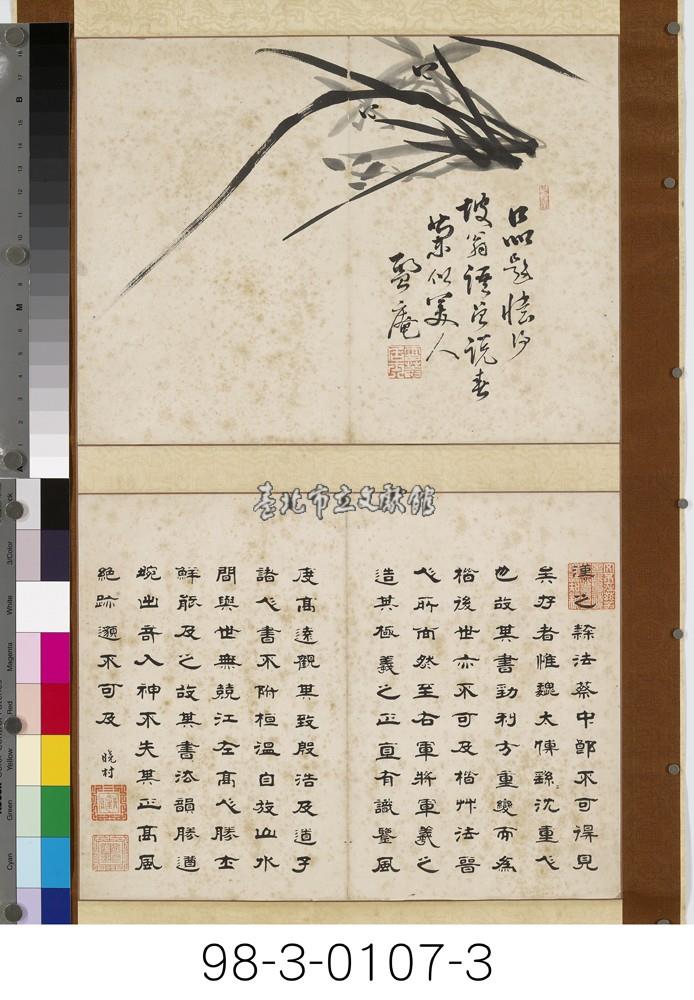 坡翁語定說春
蘭似美人
庵
臺北市立文獻館
漢之隸法蔡中郎不可得見
矣存者惟魏太傅繇沈重人
也故其書勁利方重變而為
楷後世亦不可及楷艸法晉
人所尚然至右軍將軍羲之
造其極羲之正直有識鑒風
度高遠觀其致殷浩及道子
諸人書不附桓溫自放山水
間與世無競江左高人勝士
鮮能及之故其書法韻勝遒
婉出奇入神不失其正高風
絕跡邈不可及
曉村
3/Color
White
Magenta
Red
Yellow
Green
Cyan
98-3-0107-3